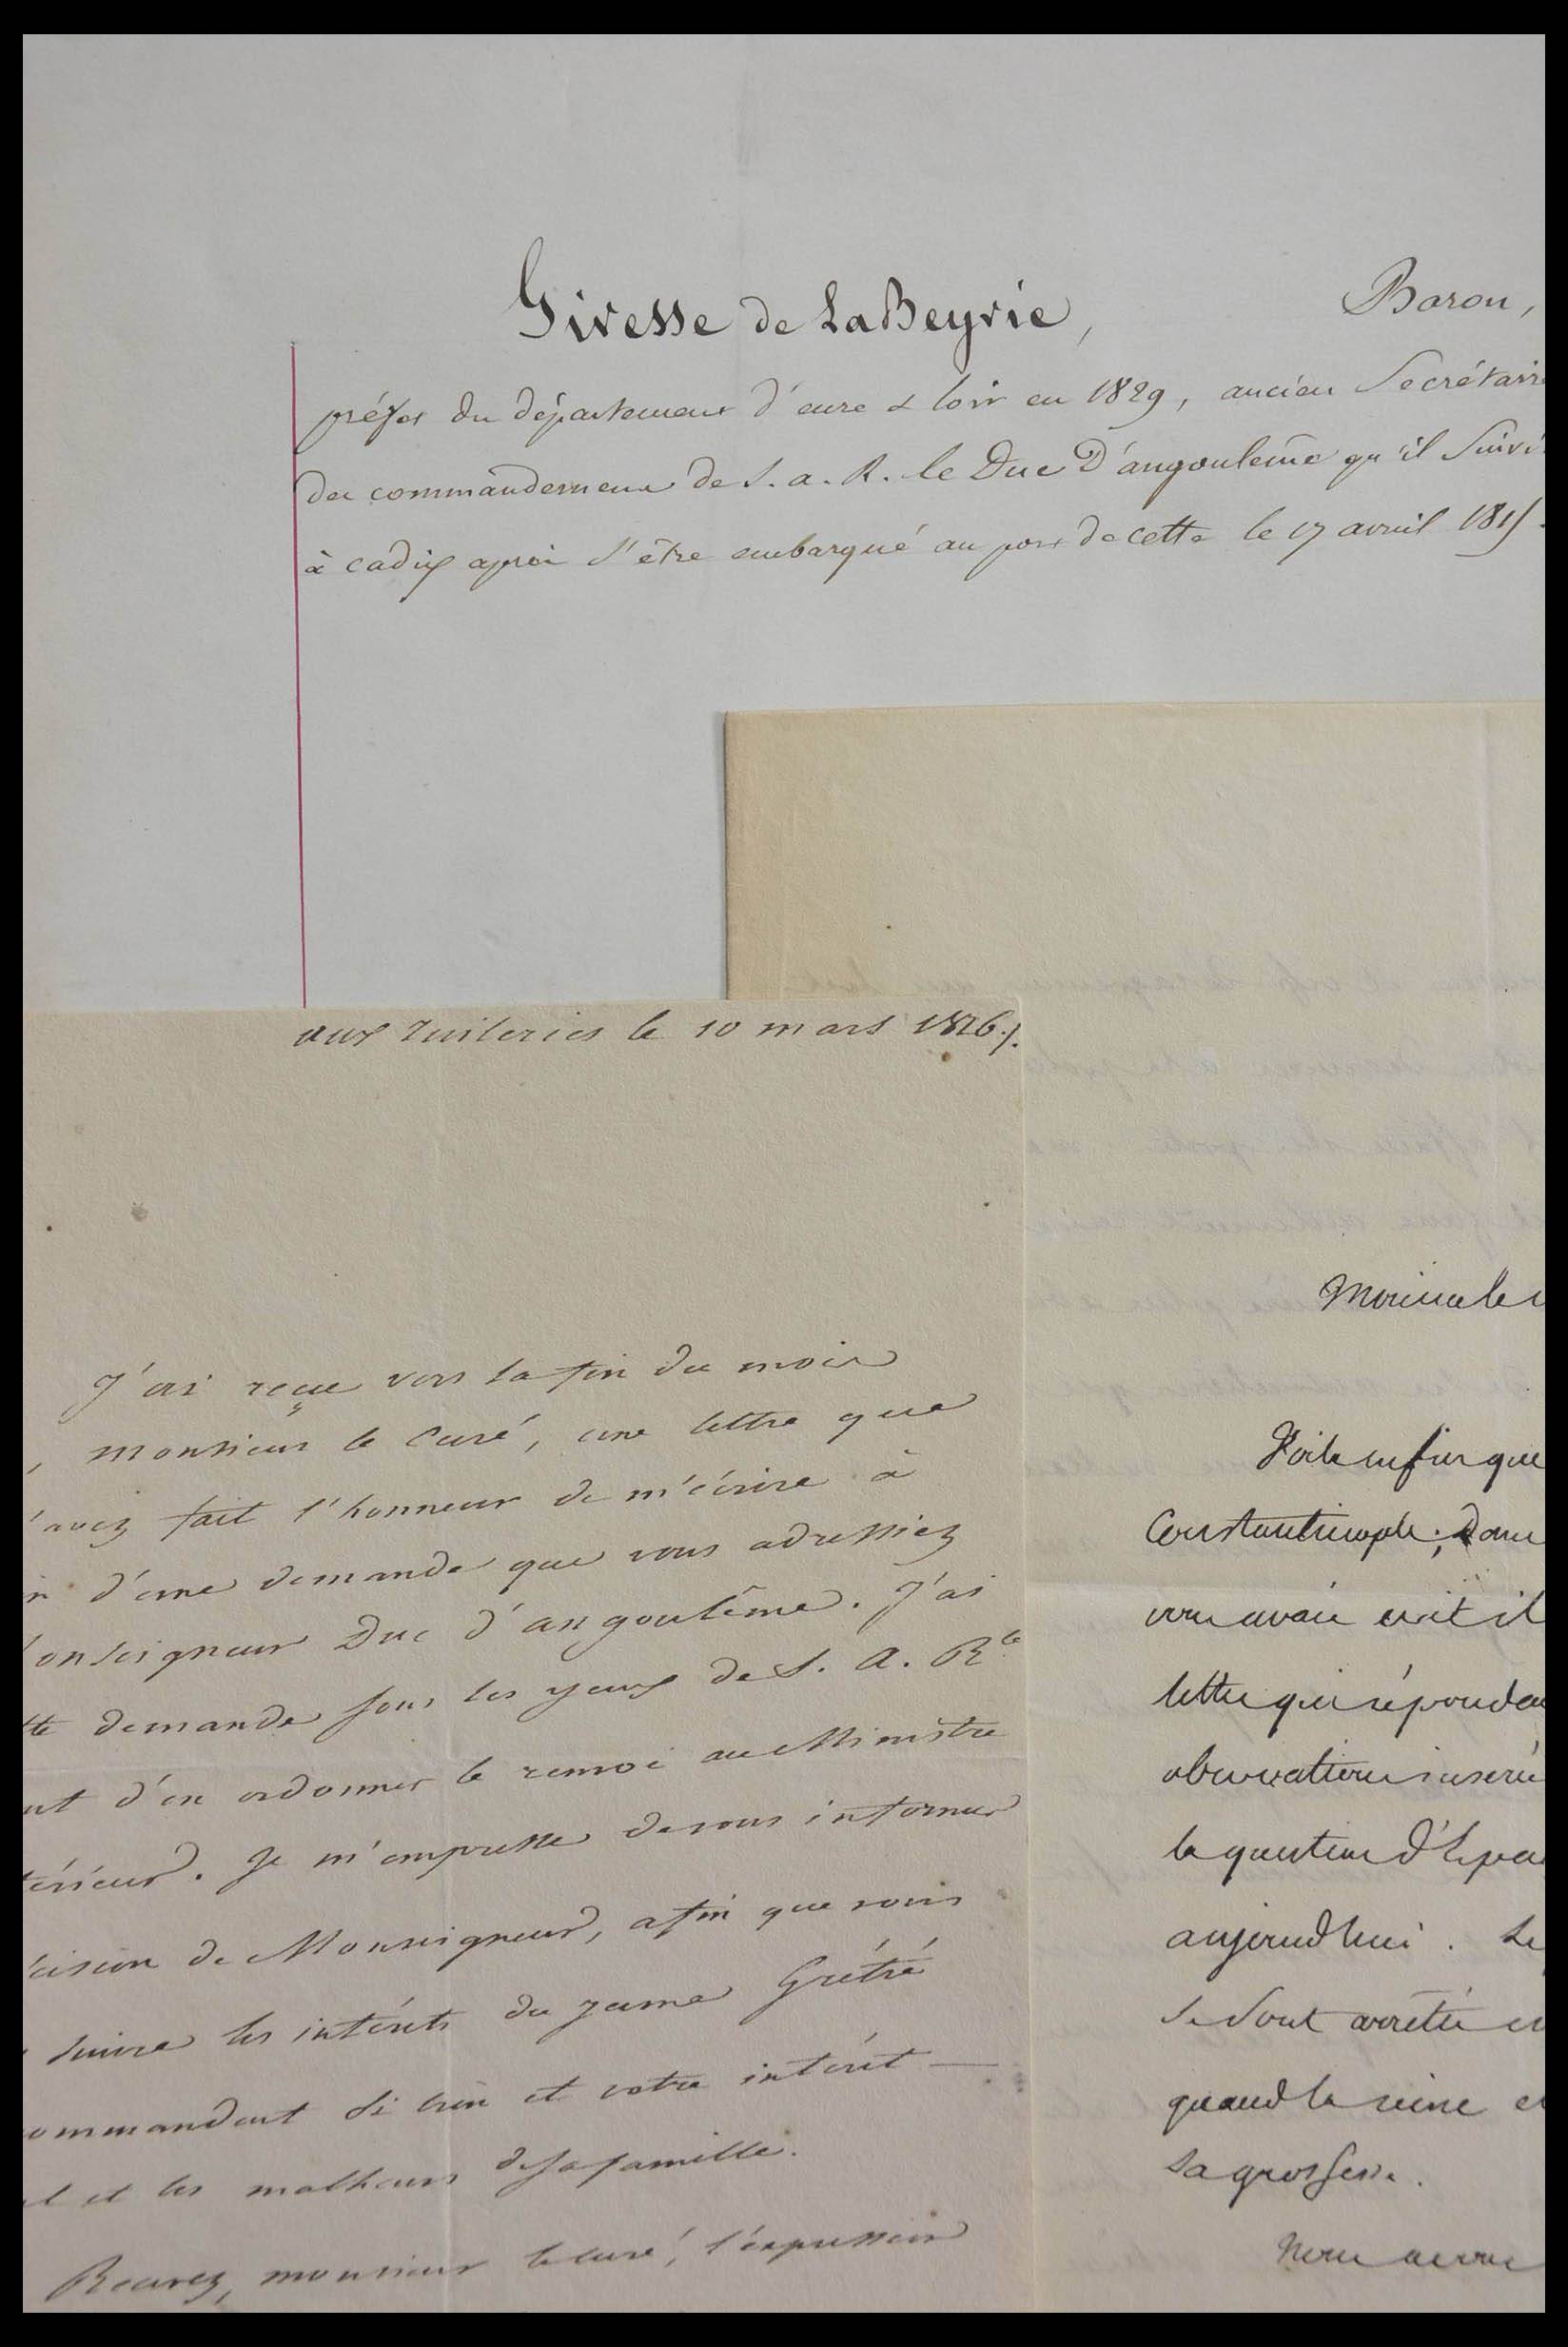 Giresse de LaBeyrie, Baron,
préfet du département d'eure & loir en 1829, ancien Secrétaire
des commandemens de S. a. R. le Duc D'angouleme qu'il Suivi
à cadix après s'être embarqué au port de cette le 17 avril 1815.
aux tuileries le 10 mars 1826
J'ai reçue vers la fin du mois
, monsieur le Curé, une lettre que
'avez fait l'honneur de m'écrire à
n d'une demande que vous adressiez
onseigneur Duc d'angoulême. J'ai
tte demande sous les yeux de S. A. Rle
nt d'en ordonner le renvoi au Ministre
térieur. Je m'empresse de vous informer
cision de Monseigneur, afin que vous
suivre les intérêts du jeune Grétré
ommandent si bien et votre intérêt
l et les malheurs de sa famille.
Recevez, monsieur le curé, l'expression
Monsieur le
Voila enfin que
Constantinople; dans
vous avais écrit il
lettre qui répondau
observations inséré
la question d'Espa
aujourd'hui. Le
se sont arrêtés
quand la reine
sa grossesse.
Nous avons